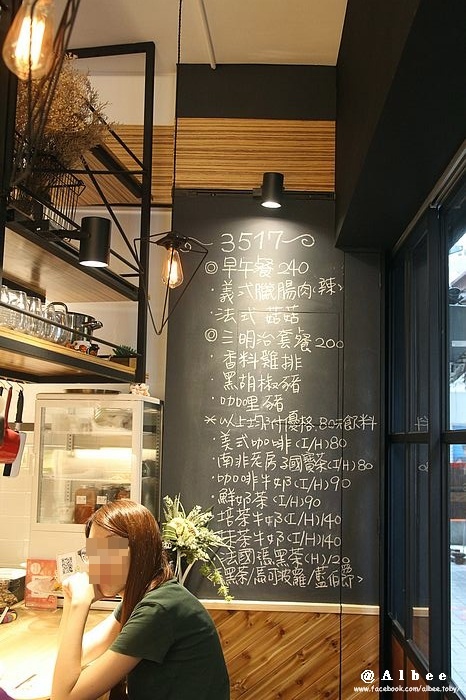 3517
◎早午餐 240
·義式臘腸肉<辣>
·法式菇菇
◎三明治套餐 200
·香料雞排
·黑胡椒豬
·咖哩豬
*以上均附優格.80元飲料
·美式咖啡(I/H)80
·南非茶房3國寶茶(I/H)80
·咖啡牛奶(I/H)90
·鮮奶茶(I/H)90
·焙茶牛奶(I/H)140
·抹茶牛奶(I/H)140
·法國瑪黑茶(H)120
<黑茶/馬可波羅/藍伯爵>
@Albee
www.facebook.com/albee.toby